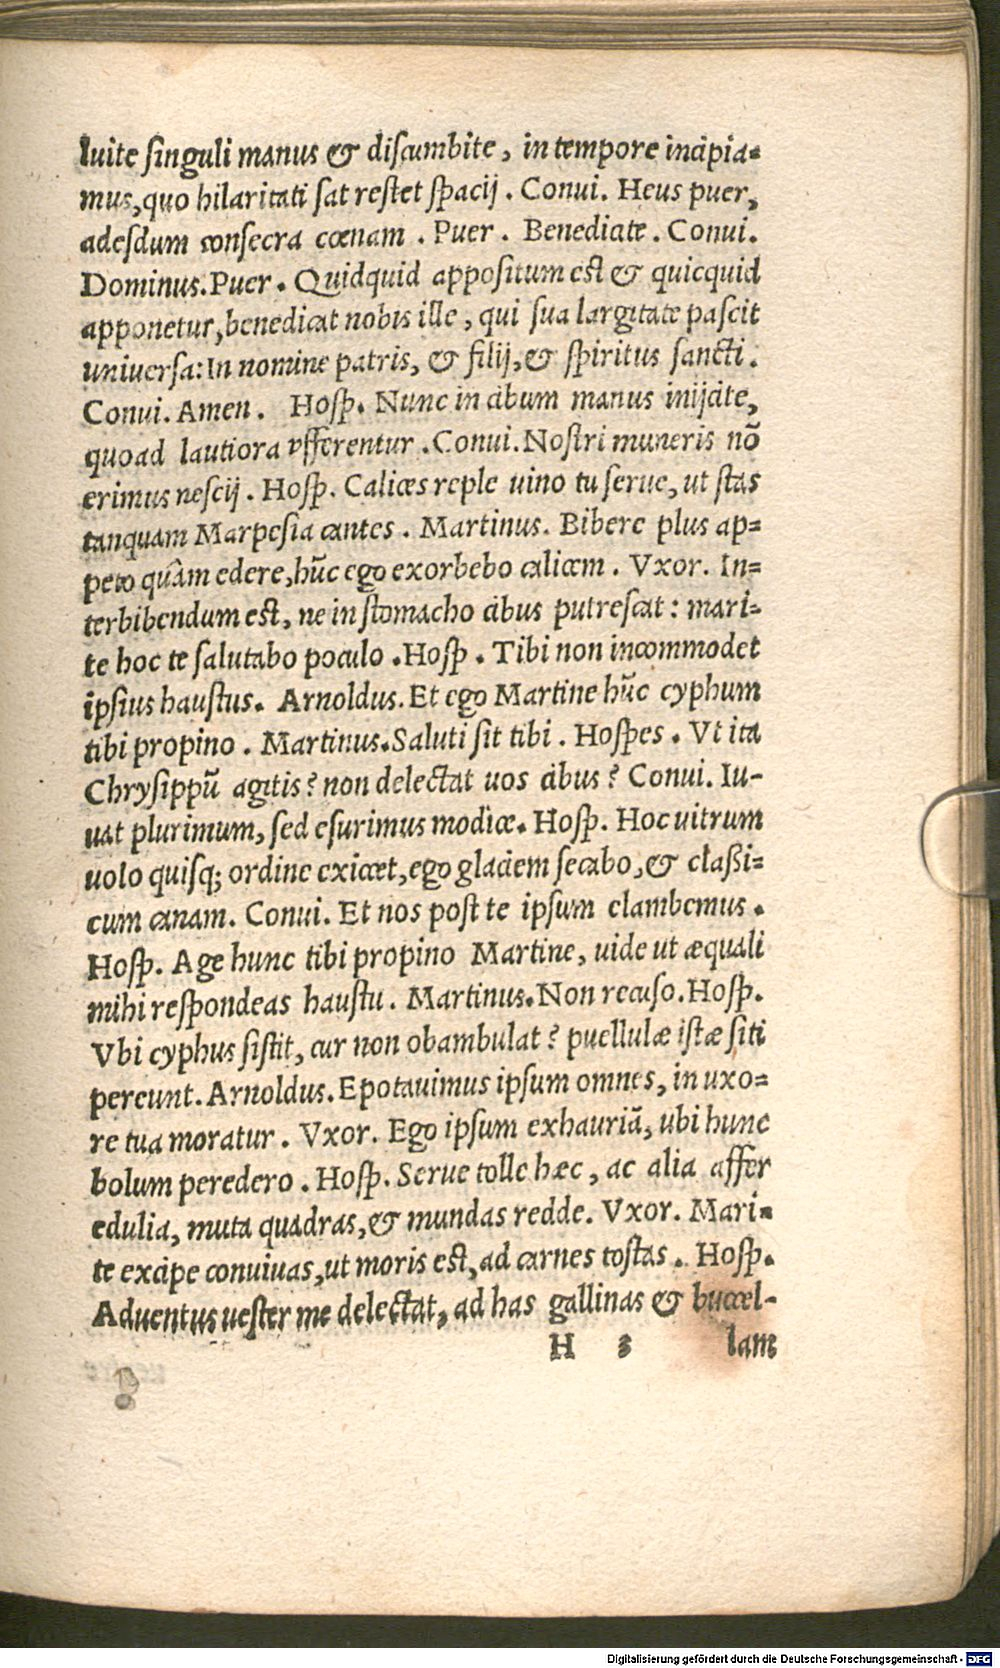 luite ſinguli manus & diſcumbite, in tempore incipia=
mus, quo hilaritati ſat reſtet ſpacij. Conui. Heus puer,
adeſdum conſecra cœnam. Puer. Benedicite. Conui.
Dominus. Puer. Quidquid appoſitum eſt & quicquid
apponetur, benedicat nobis ille, qui ſua largitate paſcit
univerſa: In nomine patris, & filij, & ſpiritus ſancti.
Conui. Amen. Hoſp. Nunc in cibum manus inijcite,
quoad lautiora vfferentur. Conui. Noſtri muneris nō
erimus neſcij. Hoſp. Calices reple uino tu ſerue, ut ſtas
tanquam Marpeſia cautes. Martinus. Bibere plus ap=
peto quàm edere, hūc ego exorbebo calicem. Vxor. In=
terbibendum eſt, ne in ſtomacho cibus putreſcat: mari=
te hoc te ſalutabo poculo. Hoſp. Tibi non incommodet
ipſius hauſtus. Arnoldus. Et ego Martine hūc cyphum
tibi propino. Martinus. Saluti ſit tibi. Hoſpes. Vt ita
Chryſippū agitis? non delectat uos cibus? Conui. Iu-
uat plurimum, ſed eſurimus modice. Hoſp. Hoc uitrum
uolo quiſq; ordine exiccet, ego glaciem ſecabo, & claßi=
cum canam. Conui. Et nos poſt te ipſum clambemus.
Hoſp. Age hunc tibi propino Martine, uide ut æquali
mihi reſpondeas hauſtu. Martinus. Non recuſo. Hoſp.
Vbi cyphus ſiſtit, cur non obambulat? puellulæ iſtæ ſiti
pereunt. Arnoldus. Epotauimus ipſum omnes, in uxo=
re tua moratur. Vxor. Ego ipſum exhauriā, ubi hunc
bolum peredero. Hoſp. Serue tolle hæc, ac alia affer
edulia, muta quadras, & mundas redde. Vxor. Mari=
te excipe conuiuas, ut moris eſt, ad carnes toſtas. Hoſp.
Aduentus ueſter me delectat, ad has gallinas & buccel-
H 3 lam
Digitalisierung gefördert durch die Deutsche Forschungsgemeinschaft - DFG